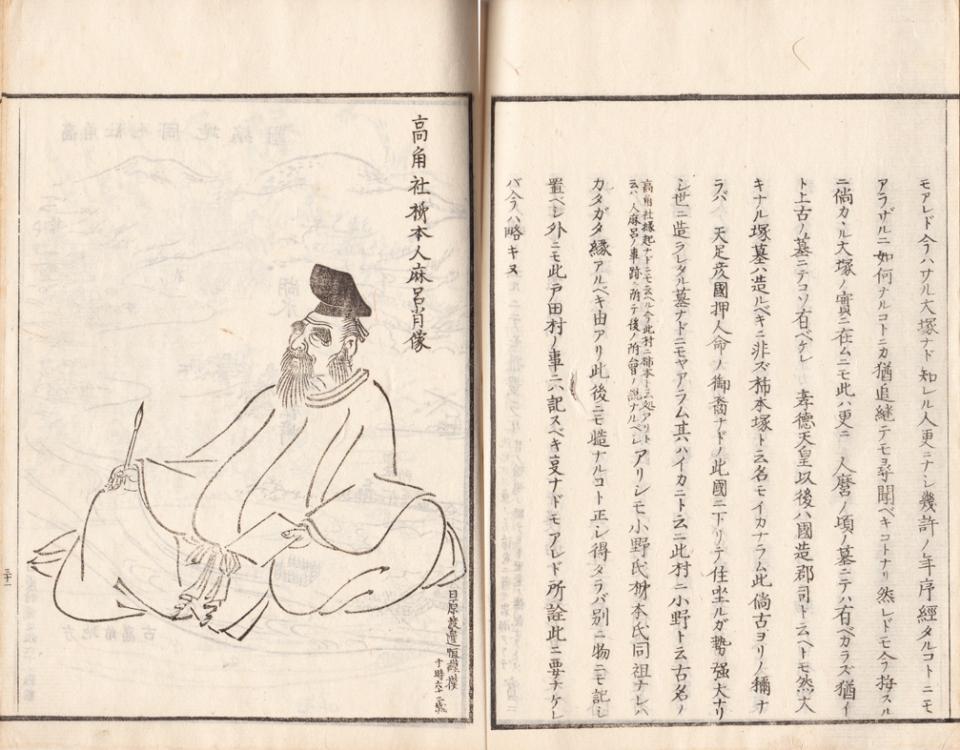 モアレド今ハサル大塚ナド知レル人更ニナシ幾許ノ年序經タルコトニモ
アラザルニ如何ナルコトニカ猶追継テモ尋聞ベキコトナリ然レドモ今按スル
ニ倘カヽル大塚ノ實ニ在ムニモ此ハ更ニ人麿ノ頃ノ墓ニテハ有ベカラズ猶イ
ト上古ノ墓ニテコソ有ベケレ 孝德天皇以後ハ國造郡司ト云ヘトモ然大
キナル塚墓ハ造ルベキニ非ズ柿本塚ト云名モイカナラム此倘古ヨリノ稱ナ
ラバ 天足彦國押人命ノ御裔ナドノ此國ニ下リテ住坐ルガ勢強大ナリ
シ世ニ造ラレタル墓ナドニモヤアラム其ハイカニト云ニ此村ニ小野ト云古名ノ
高角社縁起ナドニモ云ヘル今此村ニ柿本ト云処アリト
云ハ人麻呂ノ事跡ニ附テ後ノ附會ノ説ナルベシ
アリシモ小野氏柿本氏同祖ナレハ
カタガタ縁アルベキ由アリ此後ニモ慥ナルコト正シ得タラバ別ニ物ニモ記シ
置ベシ外ニモ此戸田村ノ事ニハ記スベキ㕝ナドモアレド所詮此ニ要ナケレ
バ今ハ略キヌ
高角社柿本人麻呂肖像